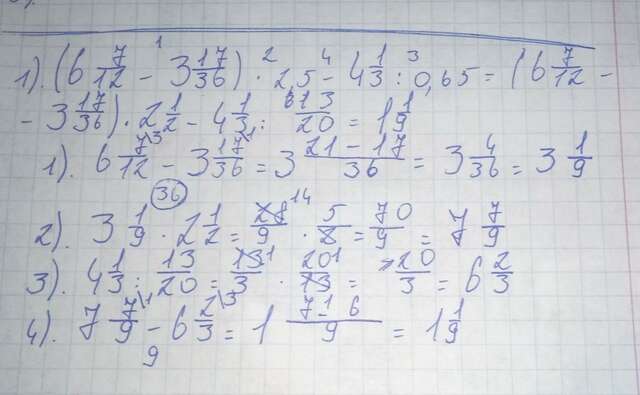 1). (6 7/12 - 3 17/36) · 2,5 - 4 1/3 : 0,65 = (6 7/12 -
- 3 17/36) · 2 1/2 - 4 1/3 : 13/20 = 1 1/9
1). 6 7/12 \3 - 3 17/36 \1 = 3 21 - 17/36 = 3 4/36 = 3 1/9
36
2). 3 1/9 · 2 1/2 = 28 14/9 · 5/2 = 70/9 = 7 7/9
3). 4 1/3 : 13/20 = 13 1/3 · 20 1/13 = 20/3 = 6 2/3
4). 7 7/9 \1 - 6 2/3 \3 = 1 7 - 6/9 = 1 1/9
9